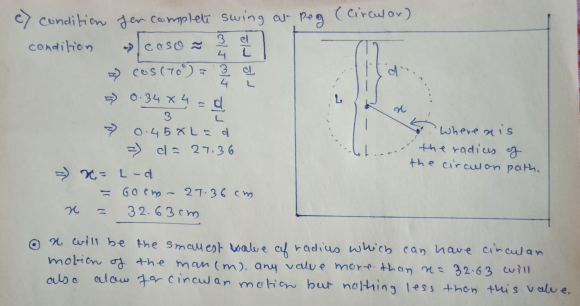 c) condition for complete swing at Peg (Circular)
condition → cosθ ≈ 3/4 d/L
⇒ cos(70°) = 3/4 d/L
⇒ 0.34 × 4 / 3 = d/L
⇒ 0.45 × L = d
⇒ d = 27.36
⇒ x = L - d
= 60 cm - 27.36 cm
x = 32.63 cm
L
d
x
where x is
the radius of
the circular path.
⊙ x will be the smallest value of radius which can have circular
motion of the man (m). any value more than x = 32.63 will
also alow for circular motion but nothing less than this value.